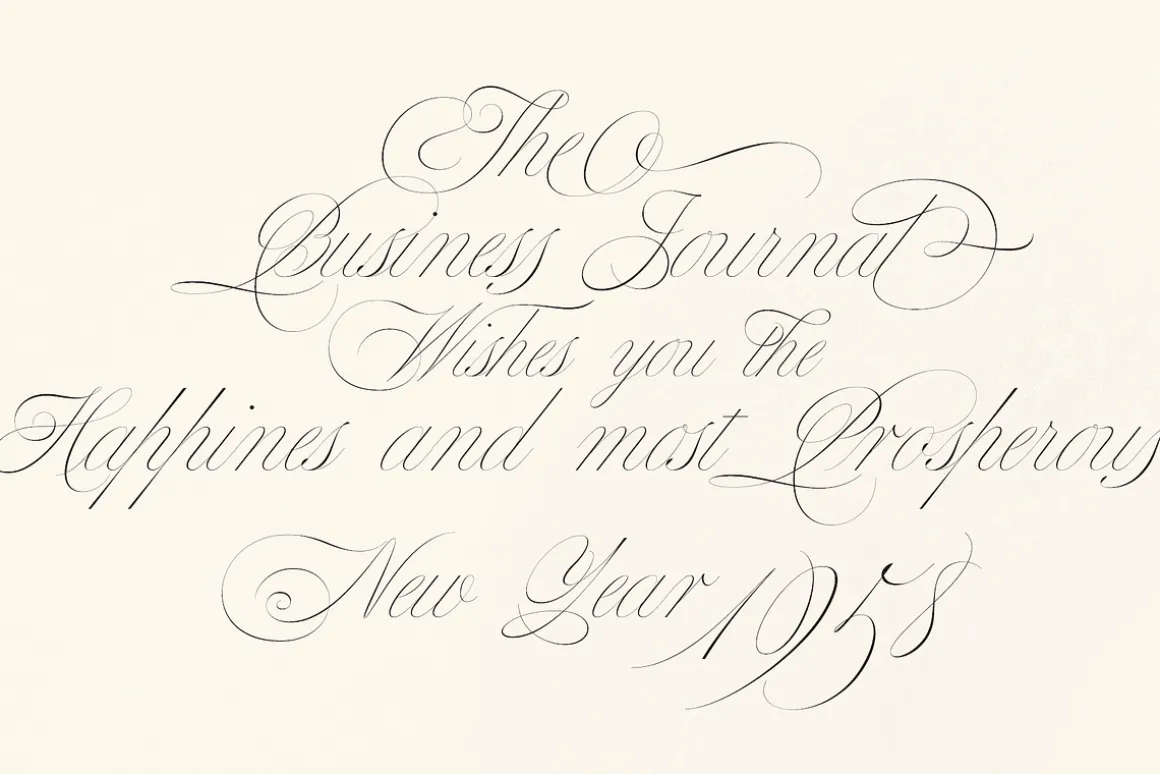 The
Business Journal
Wishes you the
Happines and most Prosperous
New Year 1958